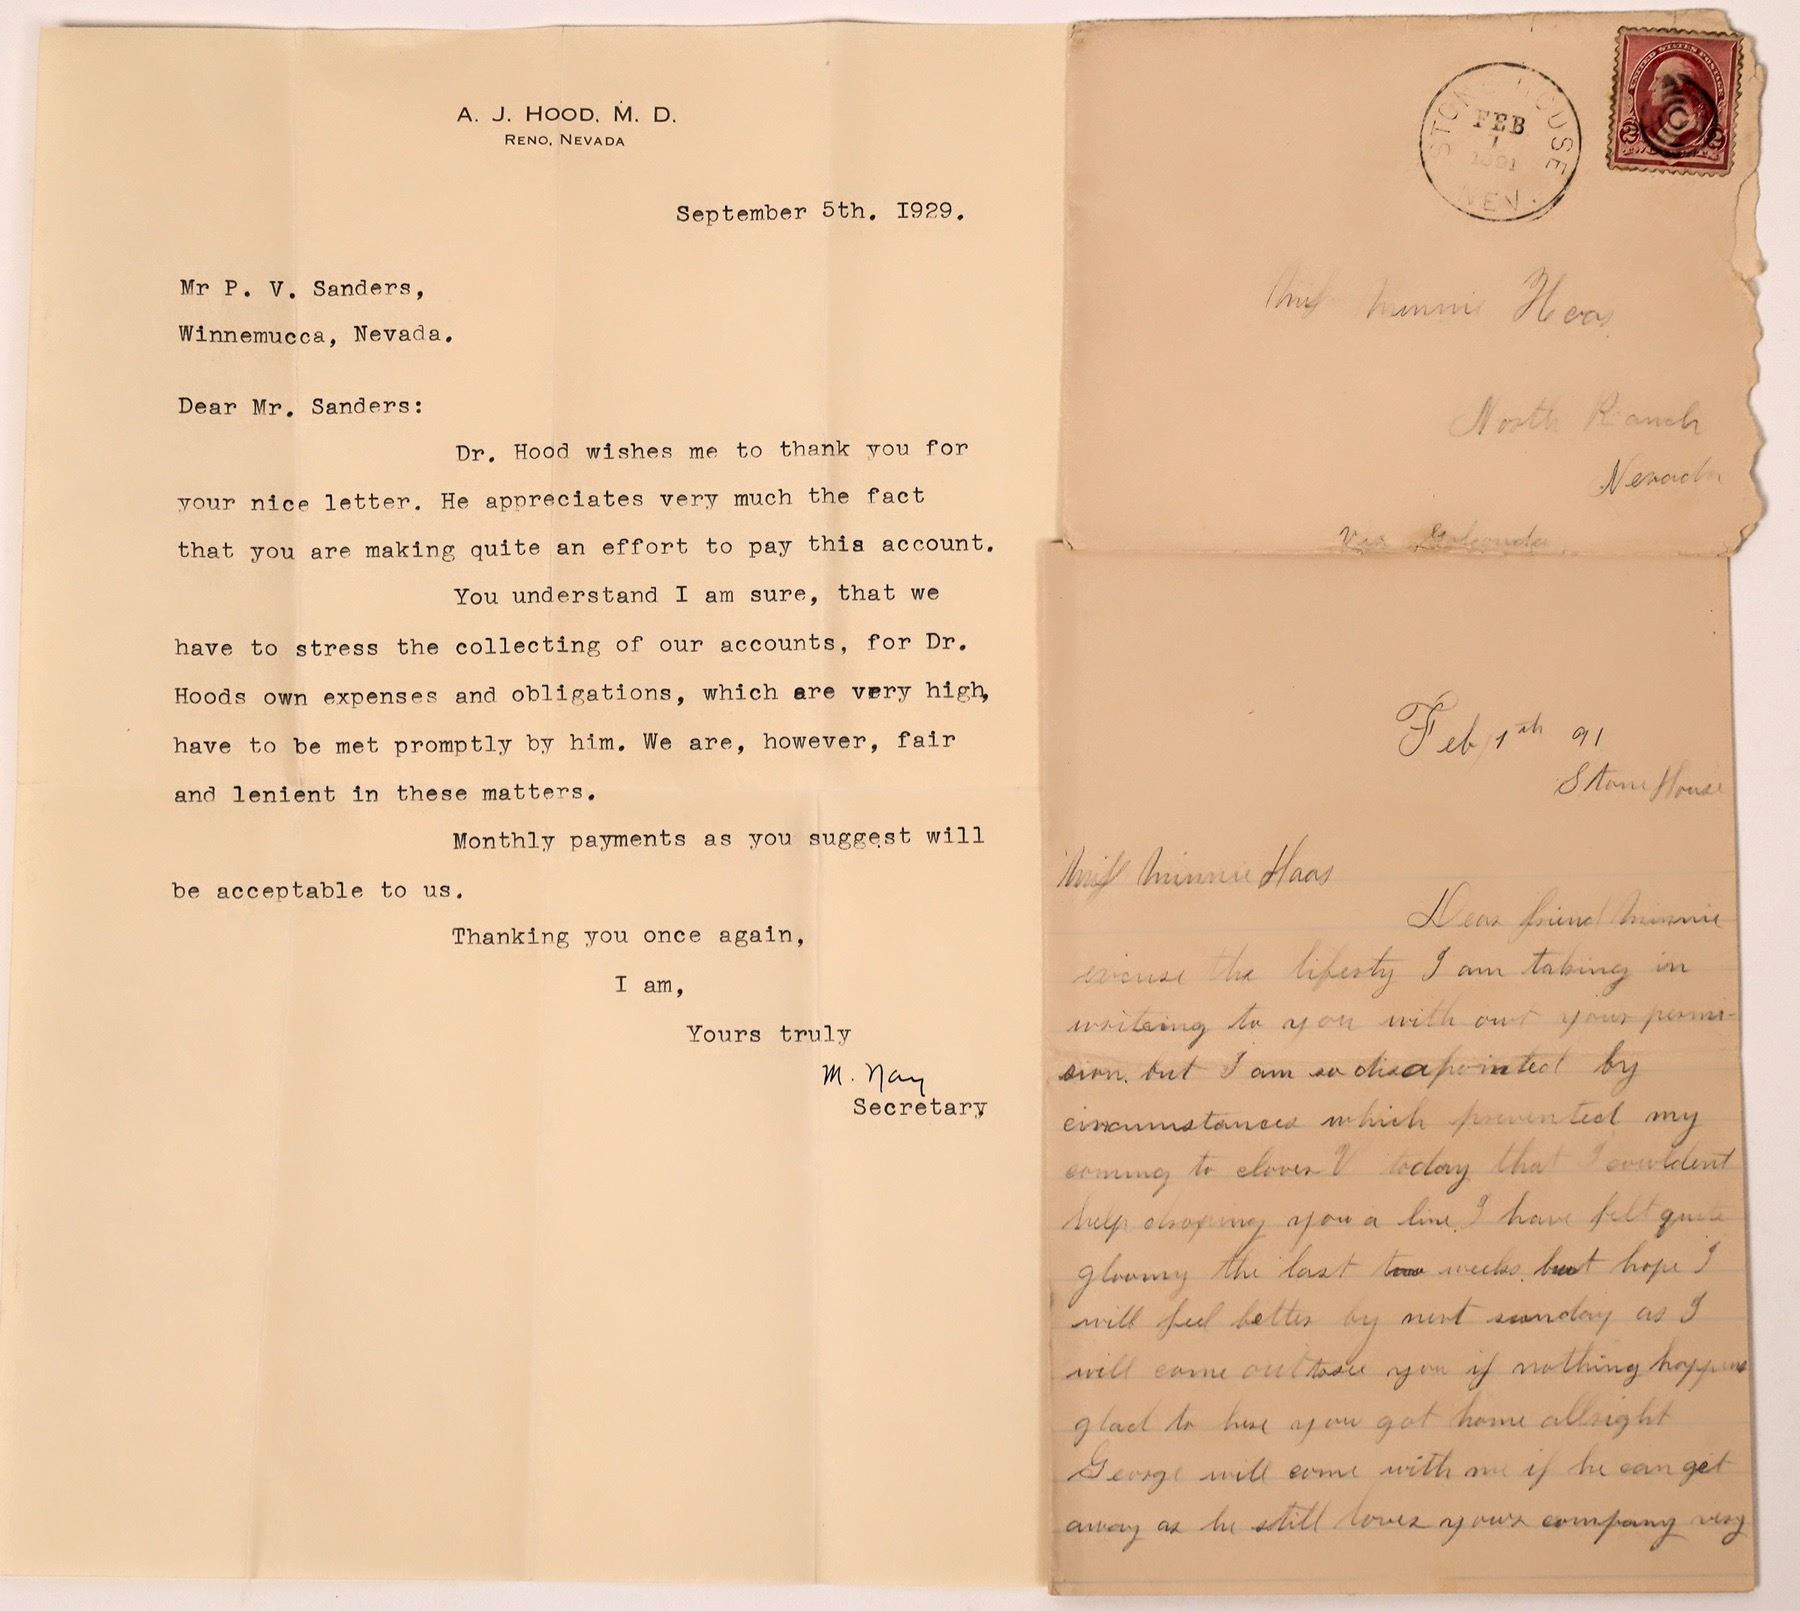 A. J. HOOD, M. D.
RENO, NEVADA
September 5th. I929.
Mr P. V. Sanders,
Winnemucca, Nevada.
Dear Mr. Sanders:
Dr. Hood wishes me to thank you for
your nice letter. He appreciates very much the fact
that you are making quite an effort to pay this account.
You understand I am sure, that we
have to stress the collecting of our accounts, for Dr.
Hoods own expenses and obligations, which are very high,
have to be met promptly by him. We are, however, fair
and lenient in these matters.
Monthly payments as you suggest will
be acceptable to us.
Thanking you once again,
I am,
Yours truly
M. Nay
Secretary
STONE HOUSE
FEB
1891
NEV.
UNITED STATES POSTAGE
2 2
Miss Minnie Haas
North Ranch
Nevada
Via Golconda
Feb 1th 91
Stone House
Miss Minnie Haas
Dear friend Minnie
excuse the liberty I am taking in
writeing to you with out your permi-
sion. but I am so disapointed by
circumstances which prevented my
coming to clover V today that I couldent
help droping you a line. I have felt quite
gloomy the last two weeks. but hope I
will feel better by next sunday as I
will come out to see you if nothing happens
glad to here you got home allright
George will come with me if he can get
away as he still loves your company very